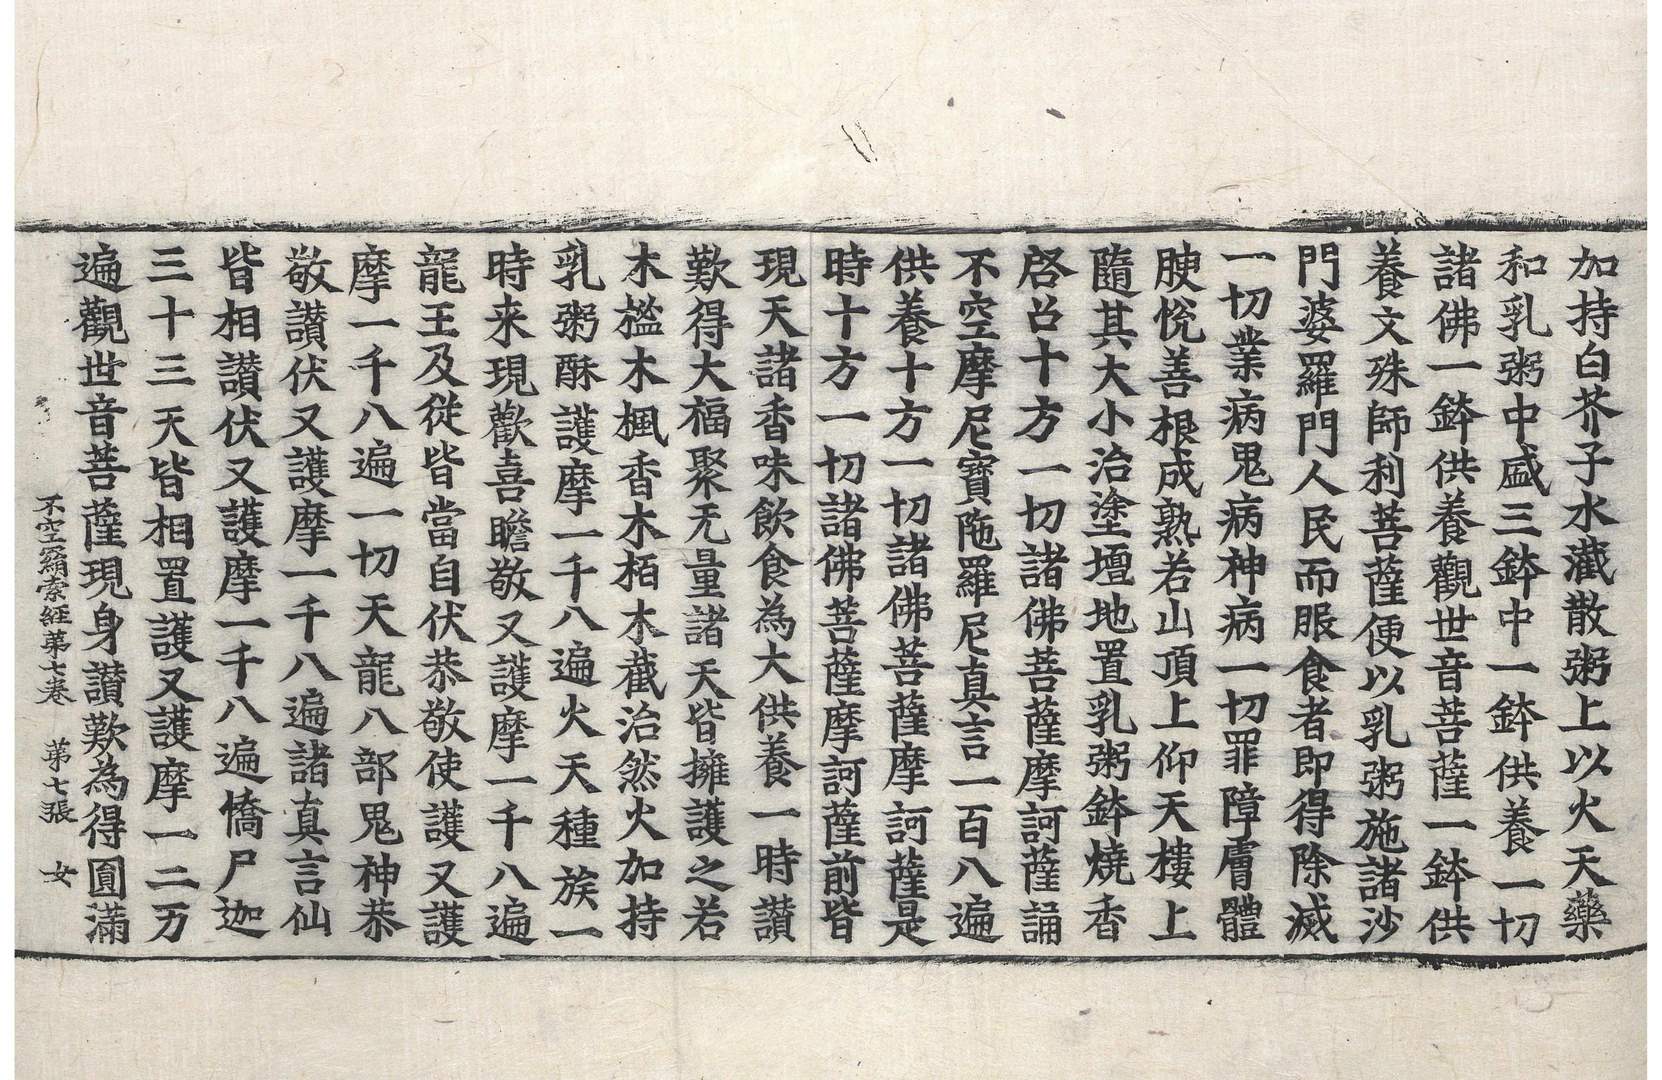 加持白芥子水灑散粥上以火天藥
和乳粥中盛三鉢中一鉢供養一切
諸佛一鉢供養觀世音菩薩一鉢供
養文殊師利菩薩便以乳粥施諸沙
門婆羅門人民而服食者即得除滅
一切業病鬼病神病一切罪障膚體
腴悅善根成熟若山頂上仰天樓上
隨其大小治塗壇地置乳粥鉢燒香
啓召十方一切諸佛菩薩摩訶薩誦
不空摩尼寶陁羅尼真言一百八遍
供養十方一切諸佛菩薩摩訶薩是
時十方一切諸佛菩薩摩訶薩前皆
現天諸香味飲食為大供養一時讃
歎得大福聚无量諸天皆擁護之若
木檻木楓香木栢木截治然火加持
乳粥酥護摩一千八遍火天種族一
時来現歡喜瞻敬又護摩一千八遍
龍王及従皆當自伏恭敬使護又護
摩一千八遍一切天龍八部鬼神恭
敬讃伏又護摩一千八遍諸真言仙
皆相讃伏又護摩一千八遍憍尸迦
三十三天皆相置護又護摩一二万
遍觀世音菩薩現身讃歎為得圓滿
不空羂索經第七卷 第七張 女